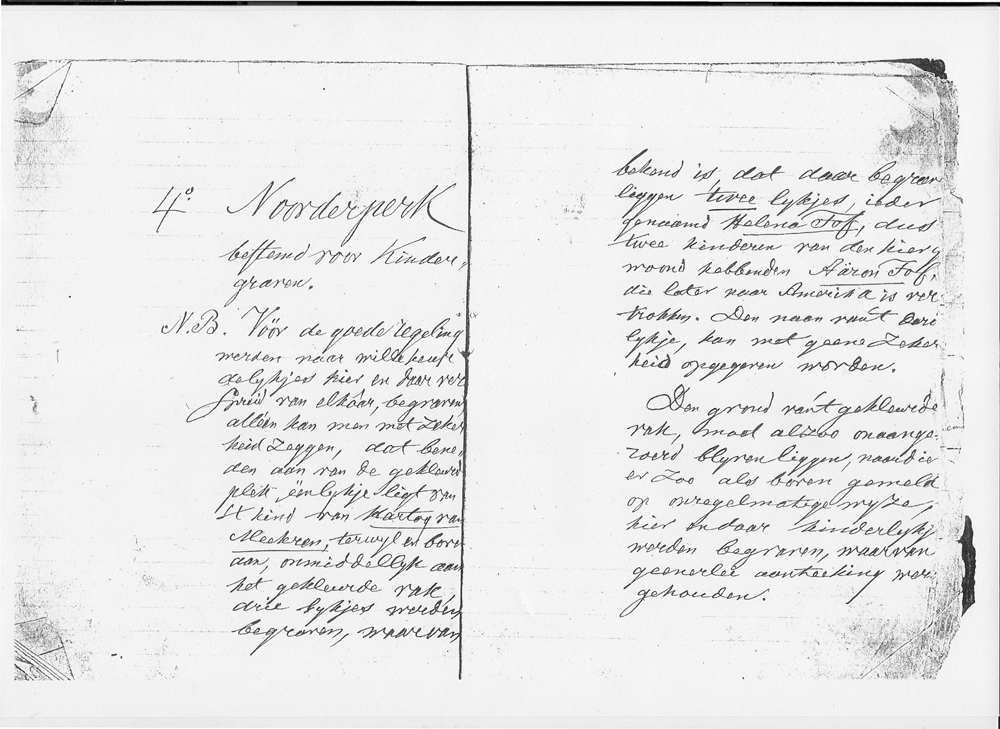 4o. Noorderperk
bestemd voor Kinder„
graven.
N.B. Vóór de goede regeling
werden naar willekeur
de lykjes hier en daar ver
spreid van elkaar, begraven
alléén kan men met zeker
heid zeggen, dat bene„
den aan van de gekleurd
plek, één lykje ligt van
't kind van Hartog van
Meekren, terwyl en bove
aan, onmiddellyk aan
het gekleurde vak,
drie lykjes werden
begraven, waarvan
bekend is, dat daar begrav
liggen twee lykjes, ieder
genaamd Helena Tof, dus
twee kinderen van den hier g
woond hebbenden Aäron Tof,
die later naar Amerika is ver
trokken. Den naam van 't der
lykje, kan met geene zeker
heid opgegeven worden.
Den grond van 't gekleurde
vak, moet alzoo onaange„
roerd blyven liggen, naardie
er zoo als boven gemeld
op onregelmatige wyze,
hier en daar kinderlykj
werden begraven, waarvan
geenerlei aanteeking wer
gehouden.